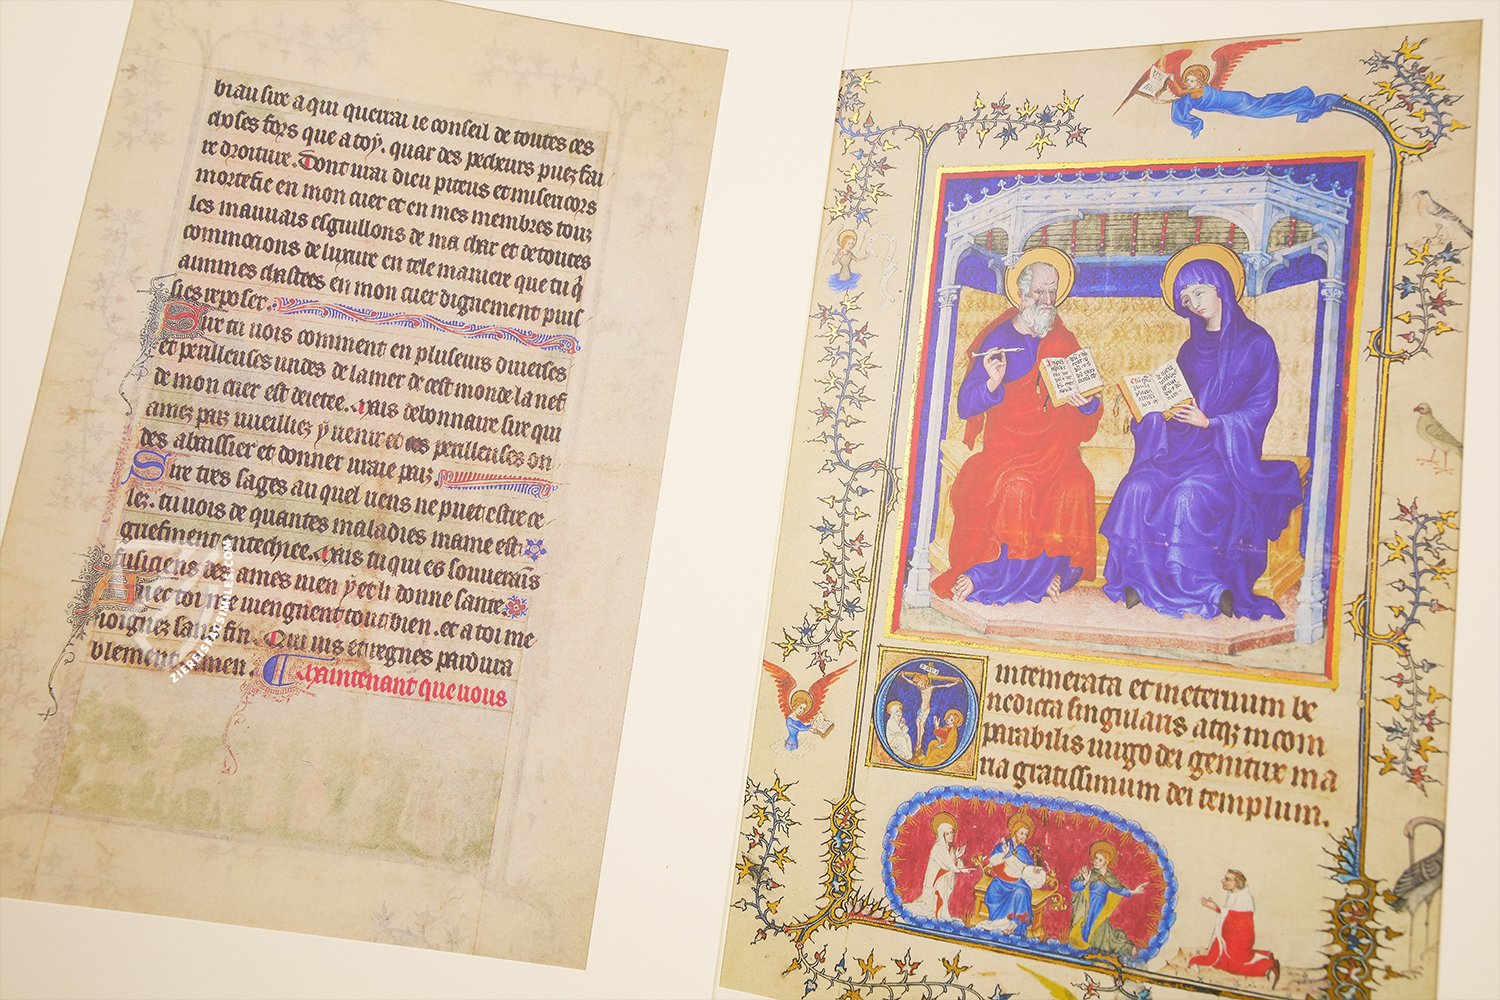 biau sire a qui querrai ie conseil de toutes ces
choses fors que a toy. quar des pecheurs puez fai
re droiture. Dont vrai dieu piteus et misericors
mortefie en mon cuer et en mes membres touz
les mauuais esguillons de ma char et de toutes
commocions de luxure en tele maniere que tu q̄
aimmes chastees en mon cuer dignement puis
ses reposer.
Sire tu uois comment en pluseurs diuerses
et perilleuses undes de la mer de cest monde la nef
de mon cuer est deietee. Mais debonnaire sire qui
amez paiz vueilliez y uenir et ces perilleuses on
des abaissier et donner uraie paiz
Sire tres sages au quel riens ne puet estre ce
lez. tu uois de quantes maladies mame est
griefment entechiee. Mais tu qui es souuerains
fusigens des ames uien y et li donne sante
Auec toi me uiengnent tout bien. et a toi me
ioignez sans fin. Qui uis et regnes pardura
blement Amen.
Maintenant que uous
intemerata et ineternum be
nedicta singularis atqз incom
parabilis uirgo dei genitrix ma
ria gratissimum dei templum.
ZIEREIS FACSIMILES.COM